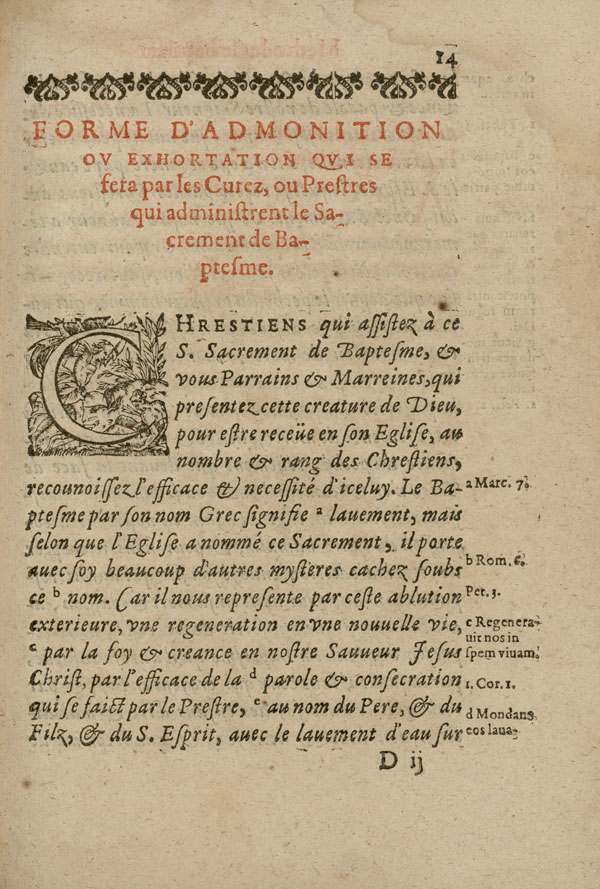 14
FORME D'ADMONITION
OV EXHORTATION QVI SE
fera par les Curez, ou Prestres
qui administrent le Sa-
crement de Ba-
ptesme.
CHRESTIENS qui assistez à ce
S. Sacrement de Baptesme, &
vous Parrains & Marreines, qui
presentez cette creature de Dieu,
pour estre receüe en son Eglise, au
nombre & rang des Chrestiens,
recounoissez l'efficace & necessité d'iceluy. Le Ba-
ptesme par son nom Grec signifie a lauement, mais
selon que l'Eglise a nommé ce Sacrement, il porte
auec soy beaucoup d'autres mysteres cachez soubs
ce b nom. Car il nous represente par ceste ablution
exterieure, vne regeneration en vne nouuelle vie,
c par la foy & creance en nostre Sauueur Jesus
Christ, par l'efficace de la d parole & consecration
qui se faict par le Prestre, e au nom du Pere, & du
Filz, & du S. Esprit, auec le lauement d'eau sur
a Marc. 7.
b Rom. 6.
Pet. 3.
c Regenera-
uit nos in
spem viuam.
1. Cor. 1.
d Mondans
eos laua-
D ij